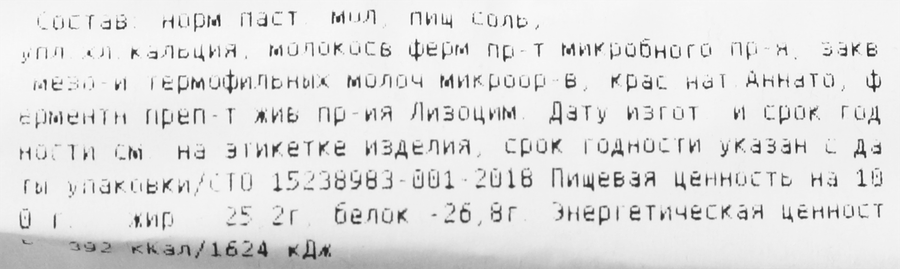 Состав: норм паст. мол, пищ соль,
упл.хл.кальция, молокосв ферм пр-т микробного пр-я, закв
мезо-и термофильных молоч микроор-в, крас нат.Аннато, ф
ерментн преп-т жив пр-ия Лизоцим. Дату изгот. и срок год
ности см. на этикетке изделия, срок годности указан с да
ты упаковки/СТО 15238983-001-2018 Пищевая ценность на 10
0 г. жир 25.2г, белок -26,8г. Энергетическая ценност
ь 392 кКал/1624 кДж